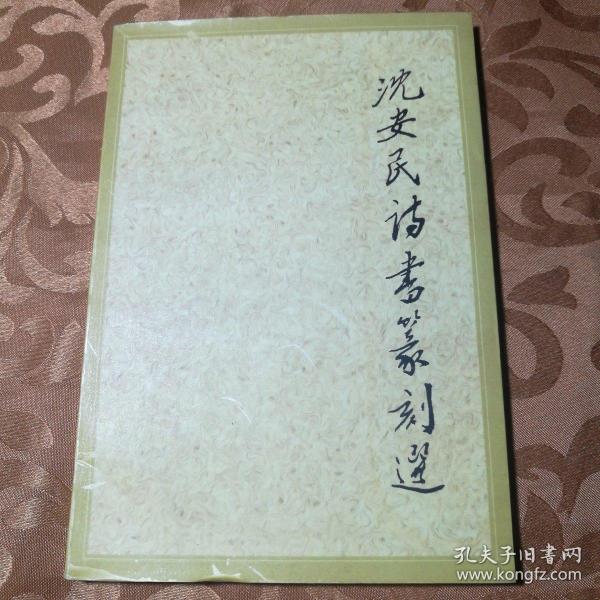 沈安民诗書篆刻選
孔夫子旧書网
www.kongfz.com